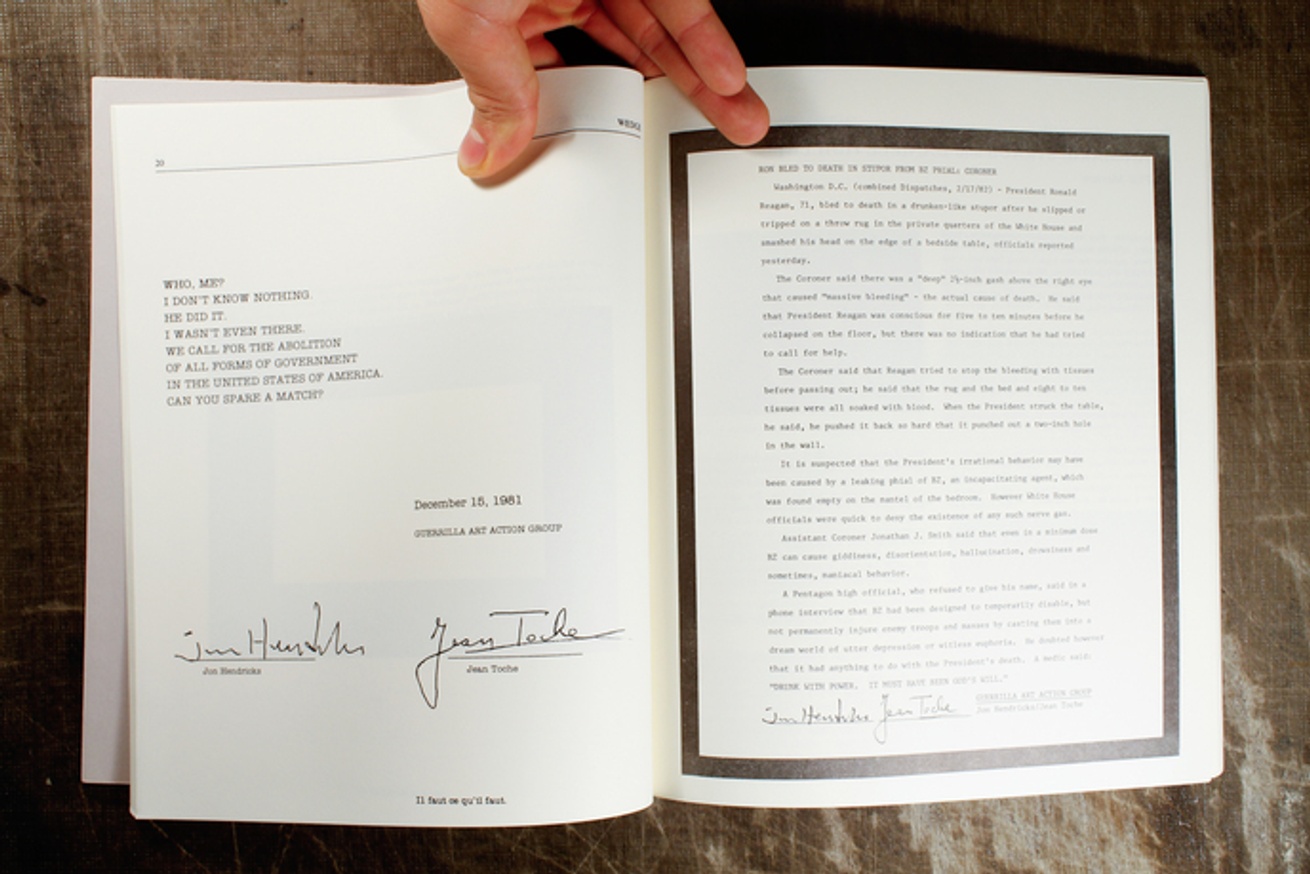 20
WEDGE
WHO, ME?
I DON'T KNOW NOTHING.
HE DID IT.
I WASN'T EVEN THERE.
WE CALL FOR THE ABOLITION
OF ALL FORMS OF GOVERNMENT
IN THE UNITED STATES OF AMERICA.
CAN YOU SPARE A MATCH?
December 15, 1981
GUERRILLA ART ACTION GROUP
Jon Hendricks
Jean Toche
Jon Hendricks
Jean Toche
Il faut ce qu'il faut.
RON BLED TO DEATH IN STUPOR FROM BZ PHIAL: CORONER
Washington D.C. (combined Dispatches, 2/17/82) - President Ronald
Reagan, 71, bled to death in a drunken-like stupor after he slipped or
tripped on a throw rug in the private quarters of the White House and
smashed his head on the edge of a bedside table, officials reported
yesterday.
The Coroner said there was a "deep" 2½-inch gash above the right eye
that caused "massive bleeding" - the actual cause of death. He said
that President Reagan was conscious for five to ten minutes before he
collapsed on the floor, but there was no indication that he had tried
to call for help.
The Coroner said that Reagan tried to stop the bleeding with tissues
before passing out; he said that the rug and the bed and eight to ten
tissues were all soaked with blood. When the President struck the table,
he said, he pushed it back so hard that it punched out a two-inch hole
in the wall.
It is suspected that the President's irrational behavior may have
been caused by a leaking phial of BZ, an incapacitating agent, which
was found empty on the mantel of the bedroom. However White House
officials were quick to deny the existence of any such nerve gas.
Assistant Coroner Jonathan J. Smith said that even in a minimum dose
BZ can cause giddiness, disorientation, hallucination, drowsiness and
sometimes, maniacal behavior.
A Pentagon high official, who refused to give his name, said in a
phone interview that BZ had been designed to temporarily disable, but
not permanently injure enemy troops and masses by casting them into a
dream world of utter depression or witless euphoria. He doubted however
that it had anything to do with the President's death. A medic said:
"DRUNK WITH POWER. IT MUST HAVE BEEN GOD'S WILL."
Jon Hendricks Jean Toche
GUERRILLA ART ACTION GROUP
Jon Hendricks/Jean Toche